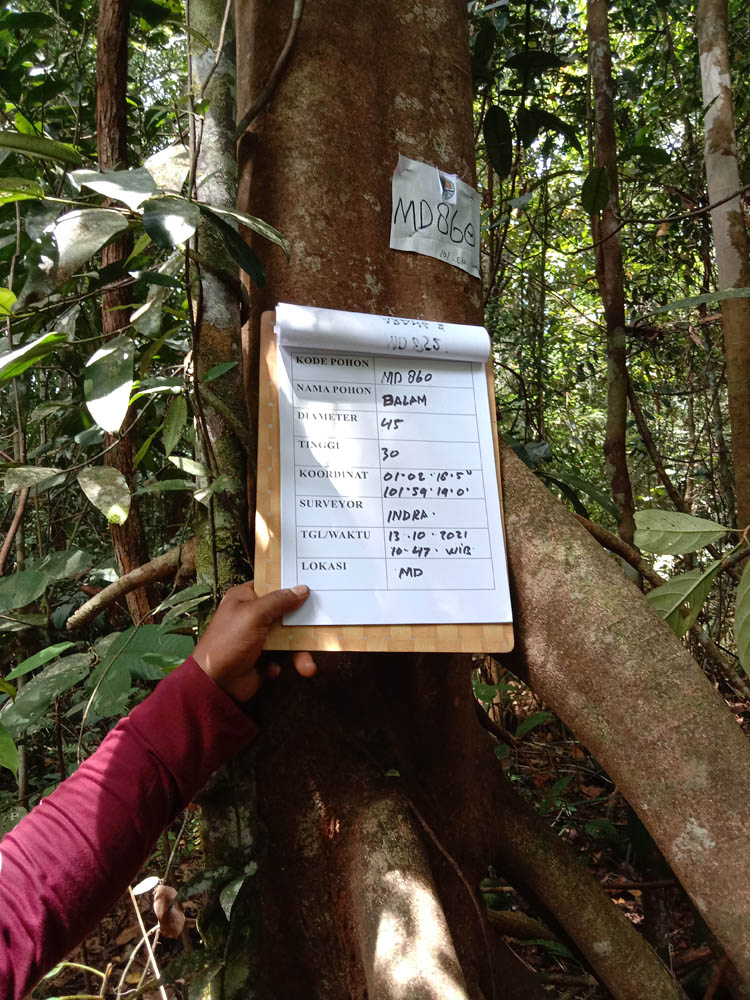 MD860
MD 825.
KODE POHON MD 860
NAMA POHON BALAM
DIAMETER 45
TINGGI 30
KOORDINAT 01·02·16·5"
101·59·19·0'
SURVEYOR INDRA.
TGL/WAKTU 13·10·2021
10·47· WIB
LOKASI MD